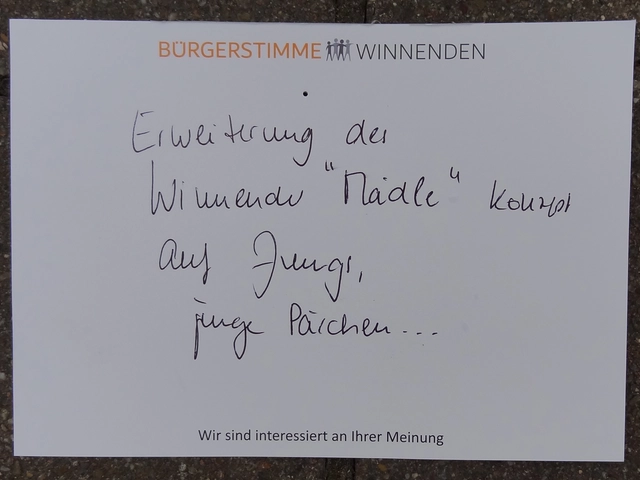 BÜRGERSTIMME WINNENDEN
Erweiterung der
Winnender "Mädle" Konzept
auf Jungs,
junge Pärchen...
Wir sind interessiert an Ihrer Meinung